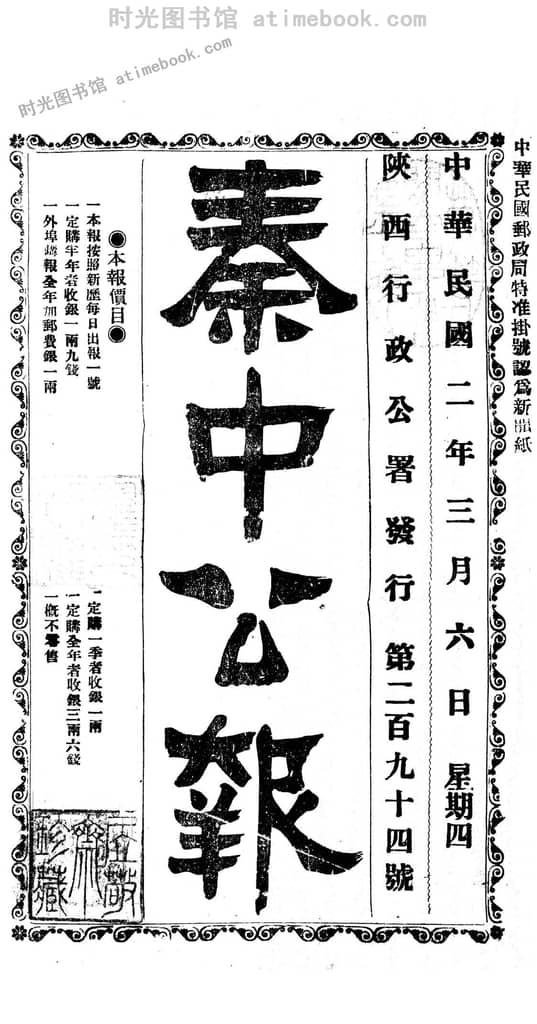 时光图书馆 atimebook.com
时光图书馆 atimebook.com
中華民國郵政局特准掛號認爲新聞紙
中華民國二年三月六日 星期四
陝西行政公署發行 第二百九十四號
秦中公報
◉本報價目◉
一本報按照新歷每日出報一號
一定購半年者收銀一兩九錢
一外埠購報全年加郵費銀一兩
一定購一季者收銀一兩
一定購全年者收銀三兩六錢
一概不零售